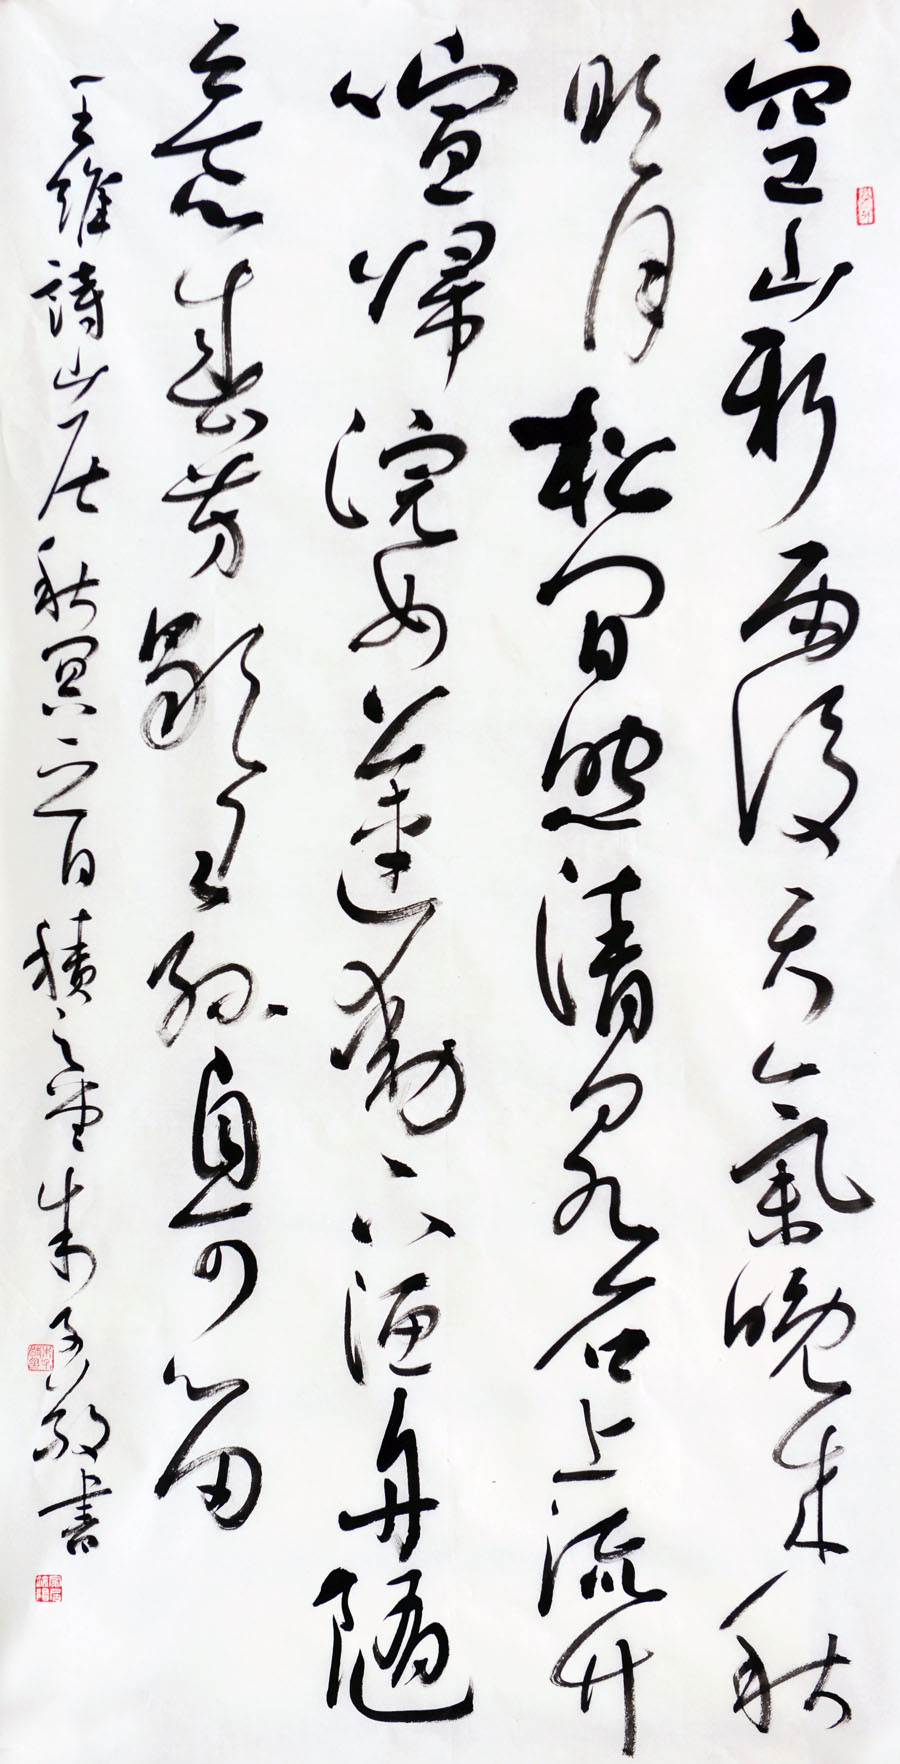 空山新雨後天氣晚來秋
明月松間照清泉石上流竹
喧歸浣女蓮動下漁舟隨
意春芳歇王孫自可留
王維詩山居秋冥積堂朱子敬書